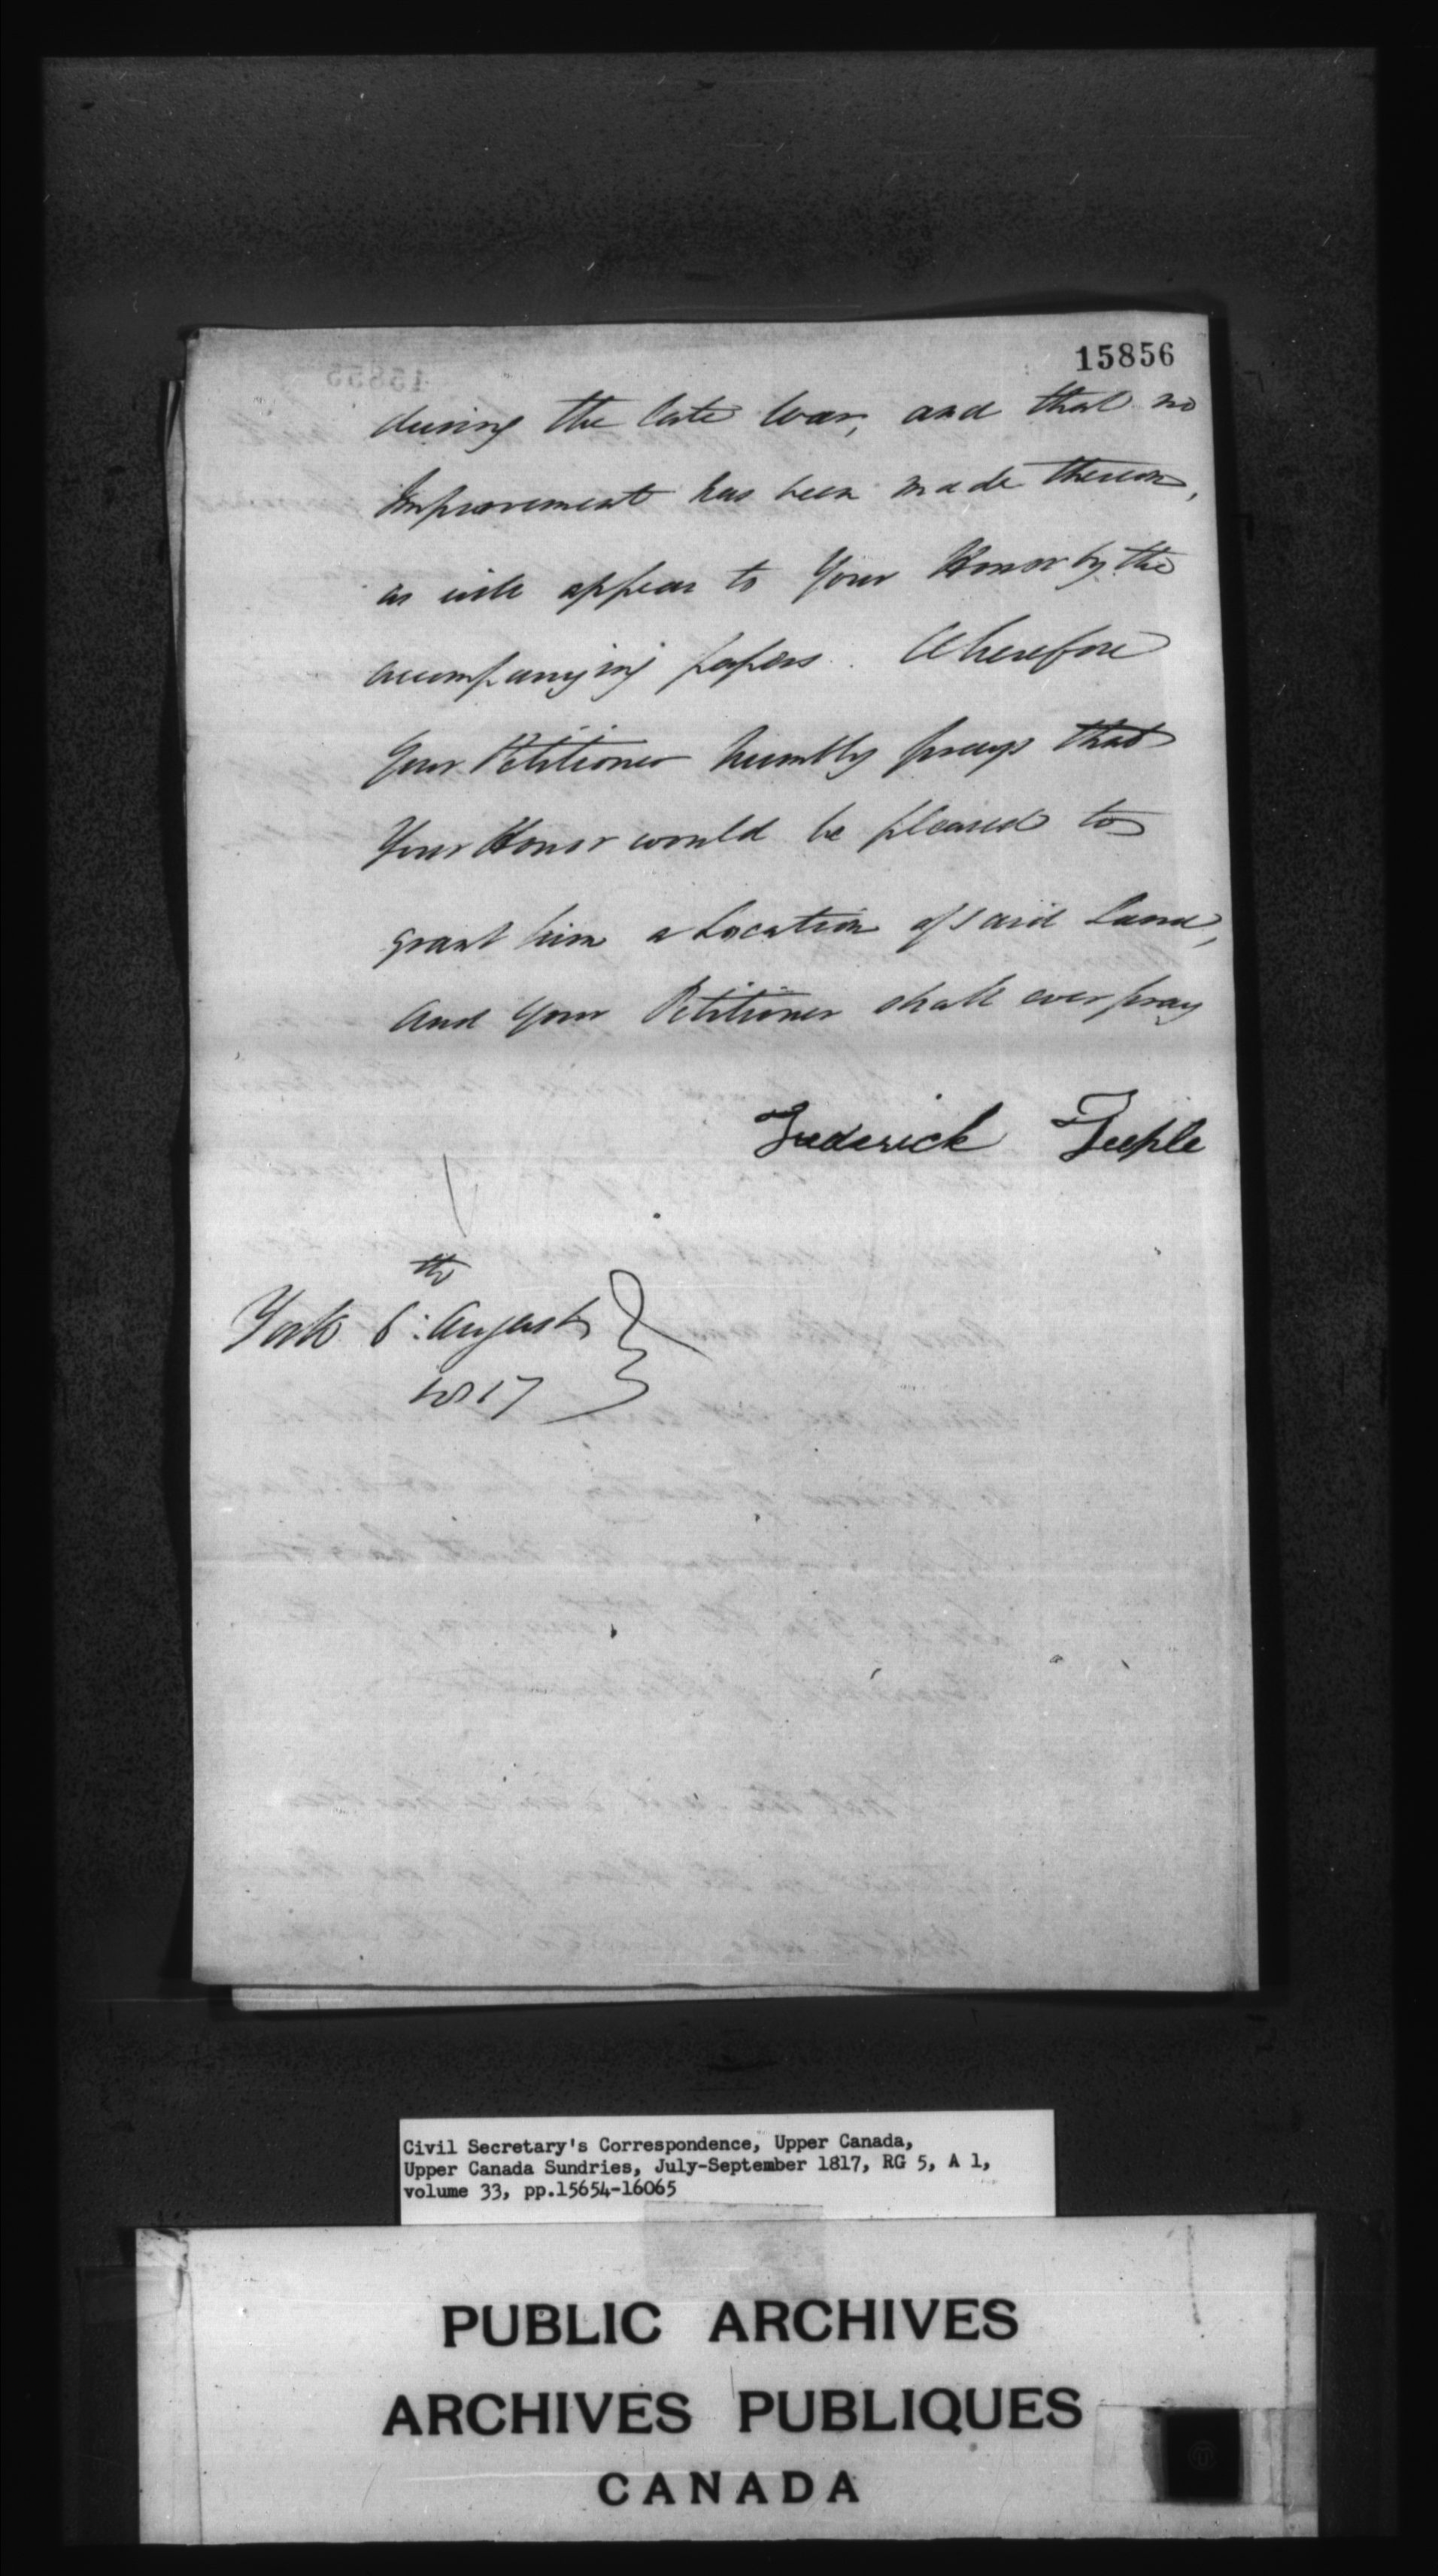 15856
during the late War, and that no
Improvement has been made thereon,
as will appear to Your Honor by the
accompanying papers. Wherefore
Your Petitioner humbly prays that
Your Honor would be pleased to
grant him a Location of said Land,
And Your Petitioner shall ever pray
Frederick Teeple
York 6th August
1817
Civil Secretary's Correspondence, Upper Canada,
Upper Canada Sundries, July-September 1817, RG 5, A 1,
volume 33, pp.15654-16065
PUBLIC ARCHIVES
ARCHIVES PUBLIQUES
CANADA